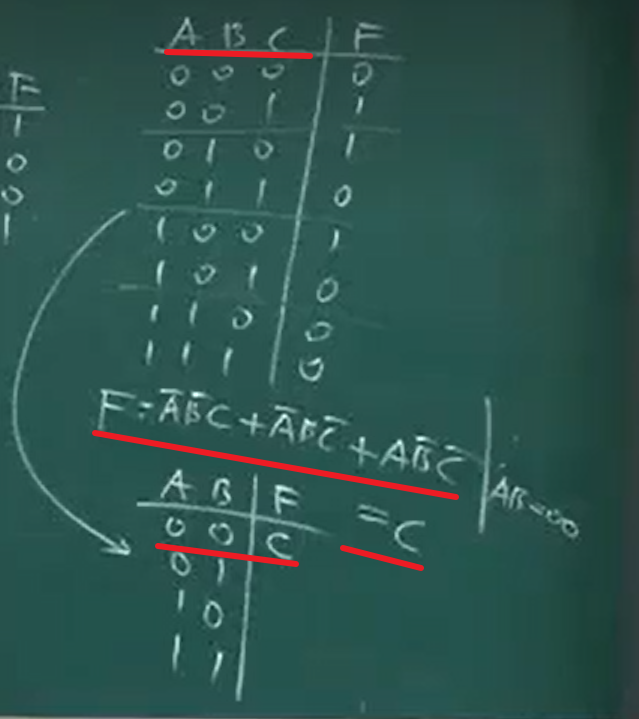 F
1
0
0
1
A B C F
0 0 0 0
0 0 1 1
0 1 0 1
0 1 1 0
1 0 0 1
1 0 1 0
1 1 0 0
1 1 1 0
F = A̅B̅C + A̅BC̅ + AB̅C̅ | AB=00
= C
A B F
0 0 C
0 1
1 0
1 1